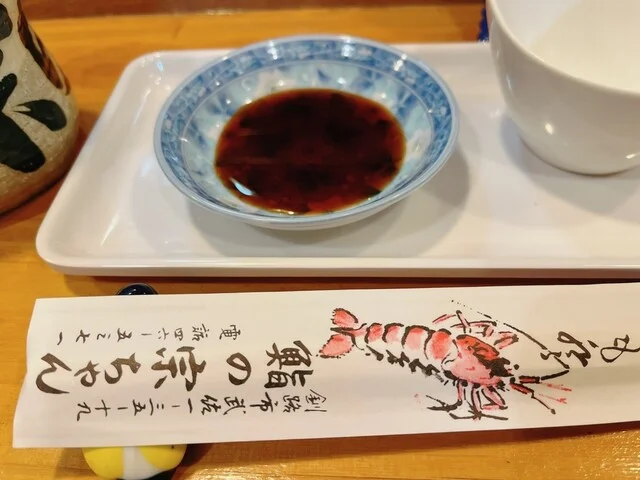 釧路市武佐一ー三五ー十九
鮨の宗ちゃん
電話四六ー五三七一